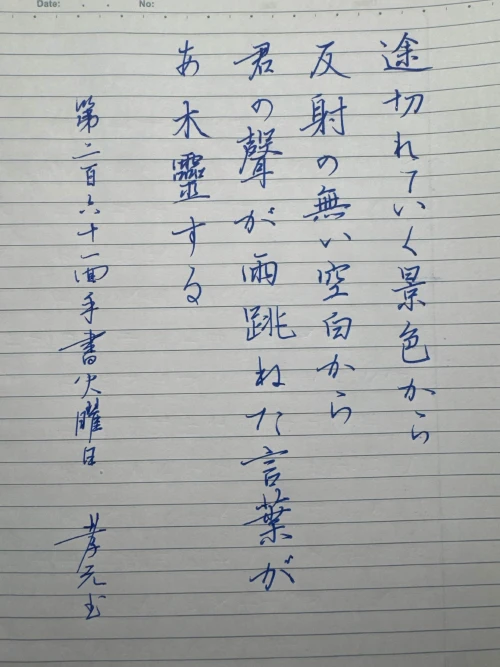 Date:
No:
途切れていく景色から
反射の無い空白から
君の聲が雨跳ねた言葉が
あ木靈する
第二百六十一回手書火曜日
孝元書